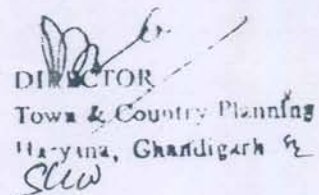 DIRECTOR
Town & Country Planning
Haryana, Ghandigarh